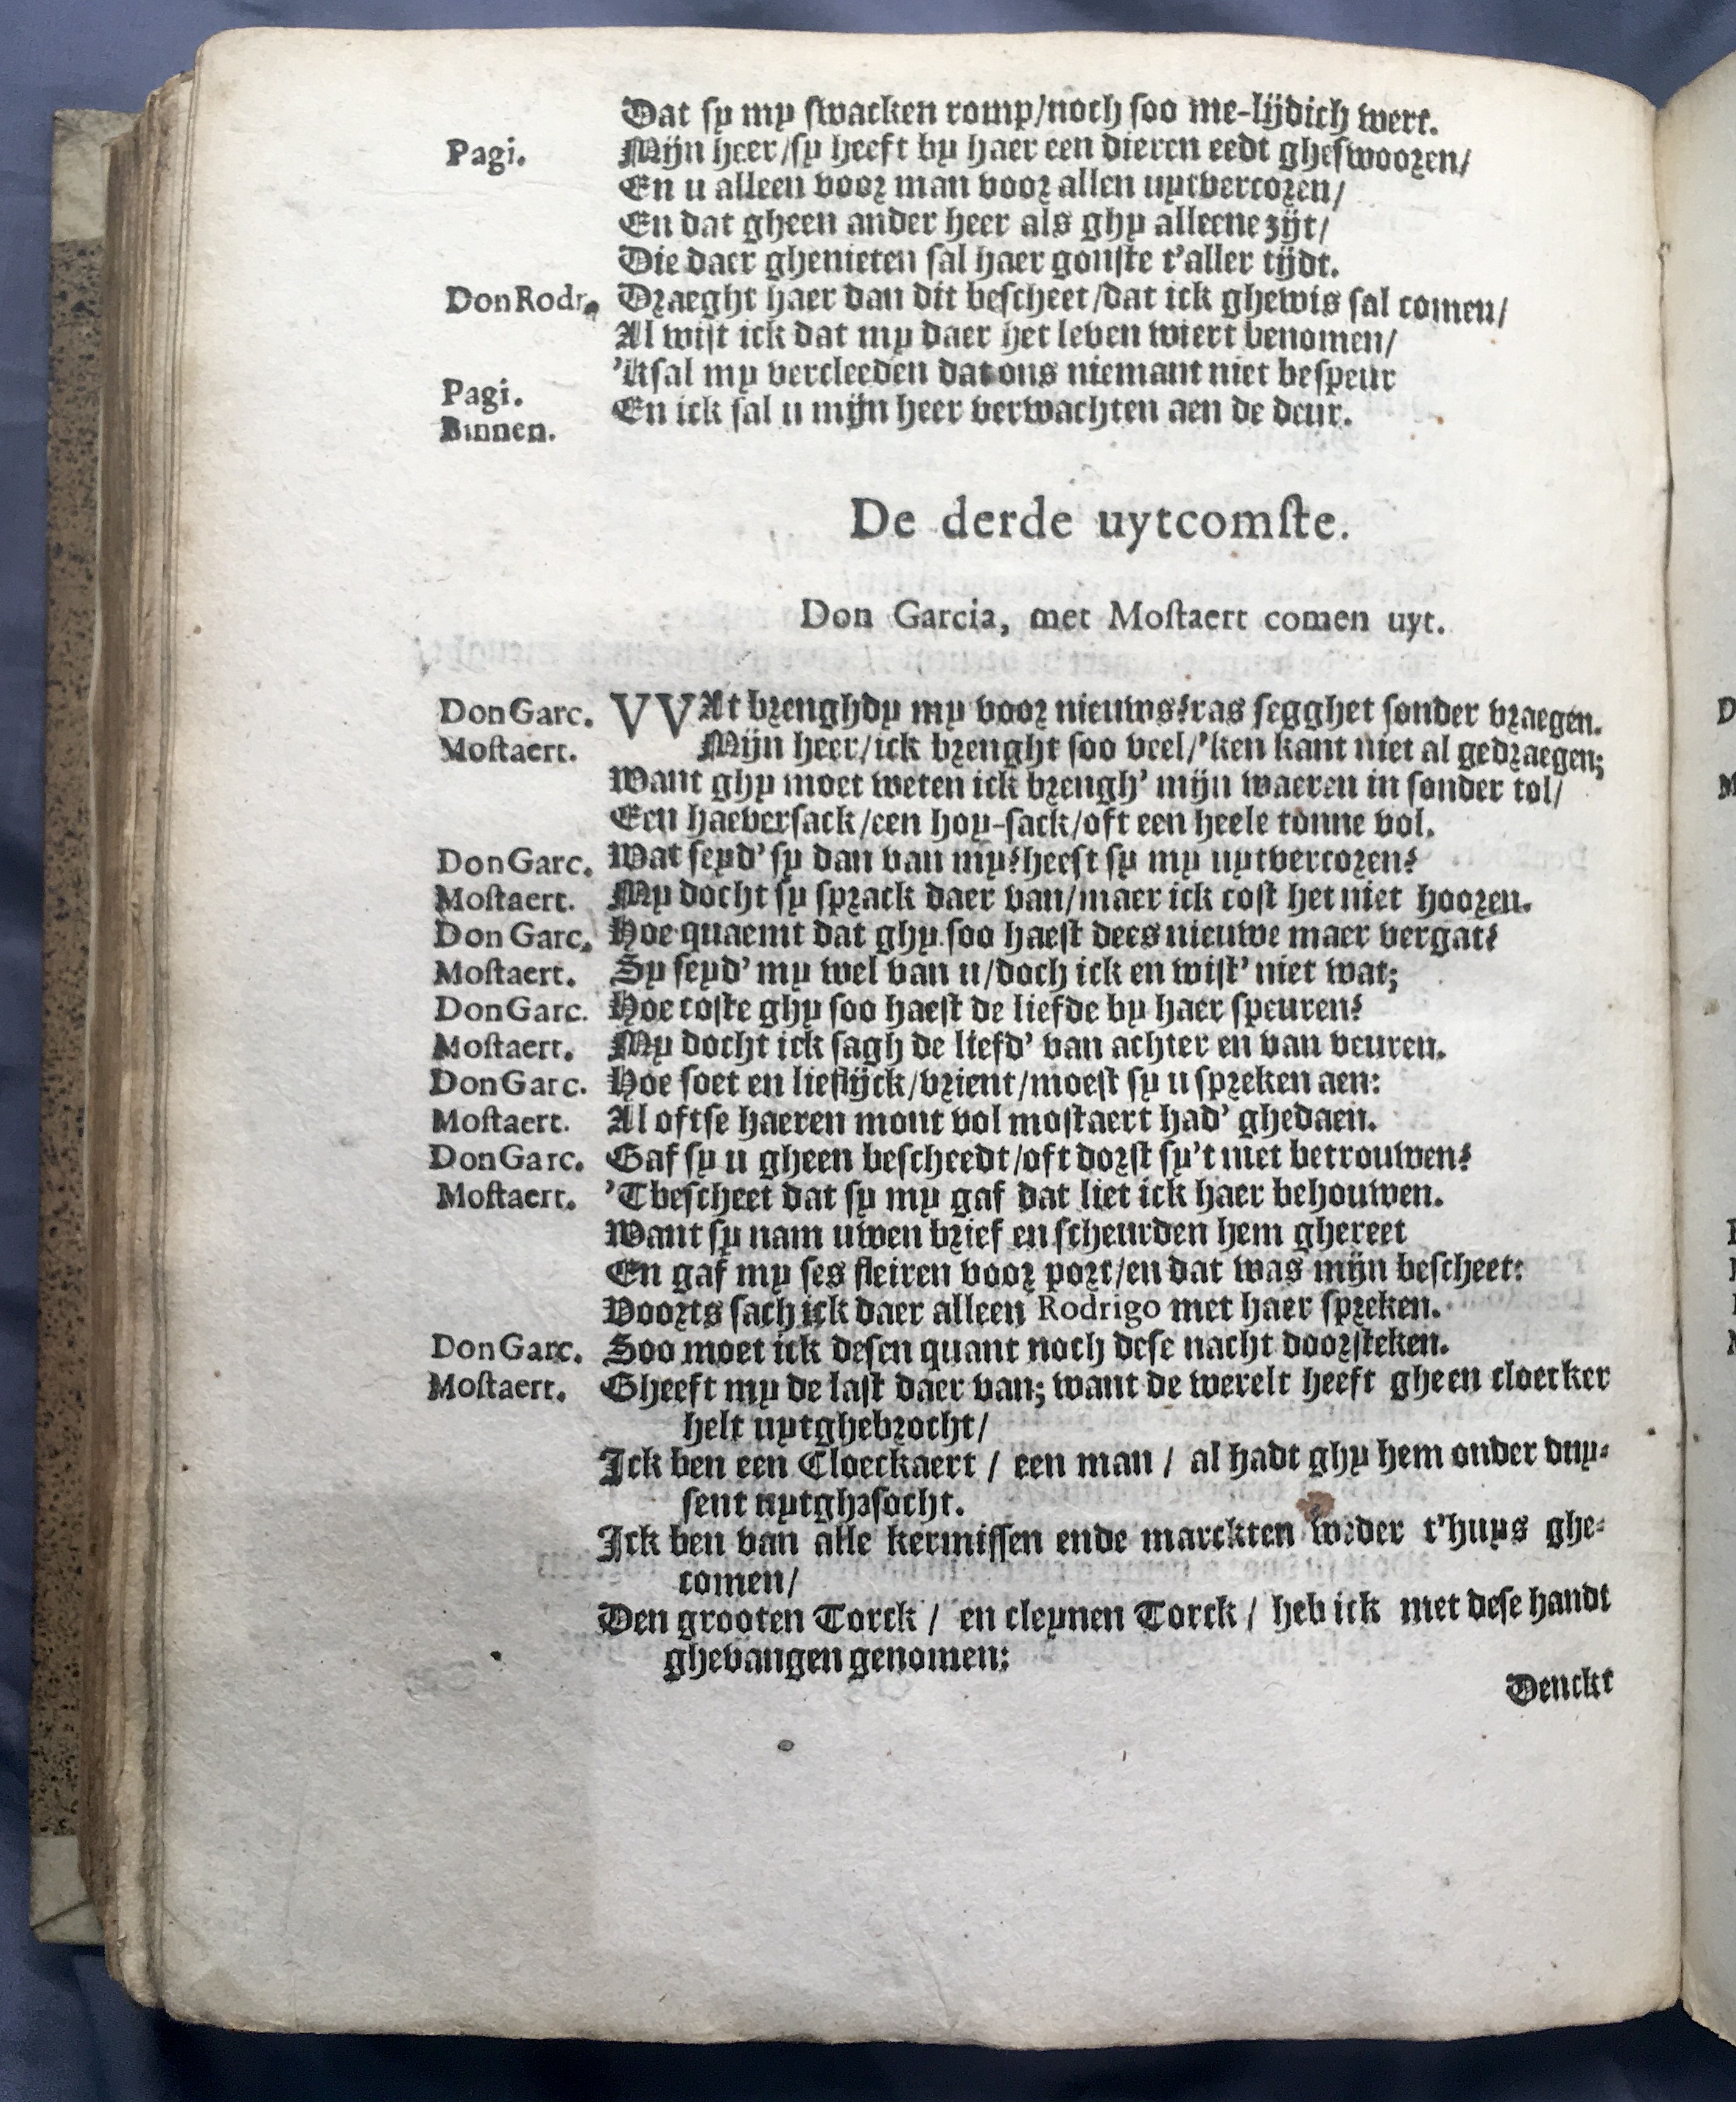 Dat sy my swacken romp/noch soo me-lijdich wert.
Pagi. Mijn heer/sy heeft by haer een dieren eedt gheswooren/
En u alleen voor man voor allen uytvercoren/
En dat gheen ander heer als ghy alleene zijt/
Die daer ghenieten sal haer gonste t'aller tijdt.
Don Rodr. Draeght haer dan dit bescheet/dat ick ghewis sal comen/
Al wist ick dat my daer het leven wiert benomen/
'Ksal my vercleeden dat ons niemant niet bespeur
Pagi. En ick sal u mijn heer verwachten aen de deur.
Binnen.
De derde uytcomste.
Don Garcia, met Mostaert comen uyt.
Don Garc. VVAt brenghdy my voor nieuws? ras segghet sonder vraegen.
Mostaert. Mijn heer/ick brenght soo veel/'ken kant niet al gedraegen;
Want ghy moet weten ick brengh' mijn waeren in sonder tol/
Een haeversack/een hoy-sack/oft een heele tonne vol.
Don Garc. Wat seyd' sy dan van my? heeft sy my uytvercoren?
Mostaert. My docht sy sprack daer van/maer ick cost het niet hooren.
Don Garc. Hoe quaemt dat ghy soo haest dees nieuwe maer vergat?
Mostaert. Sy seyd' my wel van u/doch ick en wist' niet wat;
Don Garc. Hoe coste ghy soo haest de liefde by haer speuren?
Mostaert. My docht ick sagh de liefd' van achter en van veuren.
Don Garc. Hoe soet en lieflijck/vrient/moest sy u spreken aen:
Mostaert. Al oftse haeren mont vol mostaert had' ghedaen.
Don Garc. Gaf sy u gheen bescheedt/oft dorst sy't niet betrouwen?
Mostaert. 'Tbescheet dat sy my gaf dat liet ick haer behouwen.
Want sy nam uwen brief en scheurden hem ghereet
En gaf my ses fleiren voor port/en dat was mijn bescheet:
Voorts sach ick daer alleen Rodrigo met haer spreken.
Don Garc. Soo moet ick desen quant noch dese nacht doorsteken.
Mostaert. Gheeft my de last daer van; want de werelt heeft gheen cloecker
helt uytghebrocht/
Ick ben een Cloeckaert / een man / al hadt ghy hem onder duy-
sent uytghesocht.
Ick ben van alle kermissen ende marckten weder t'huys ghe-
comen/
Den grooten Torck / en cleynen Torck / heb ick met dese handt
ghevangen genomen:
Denckt